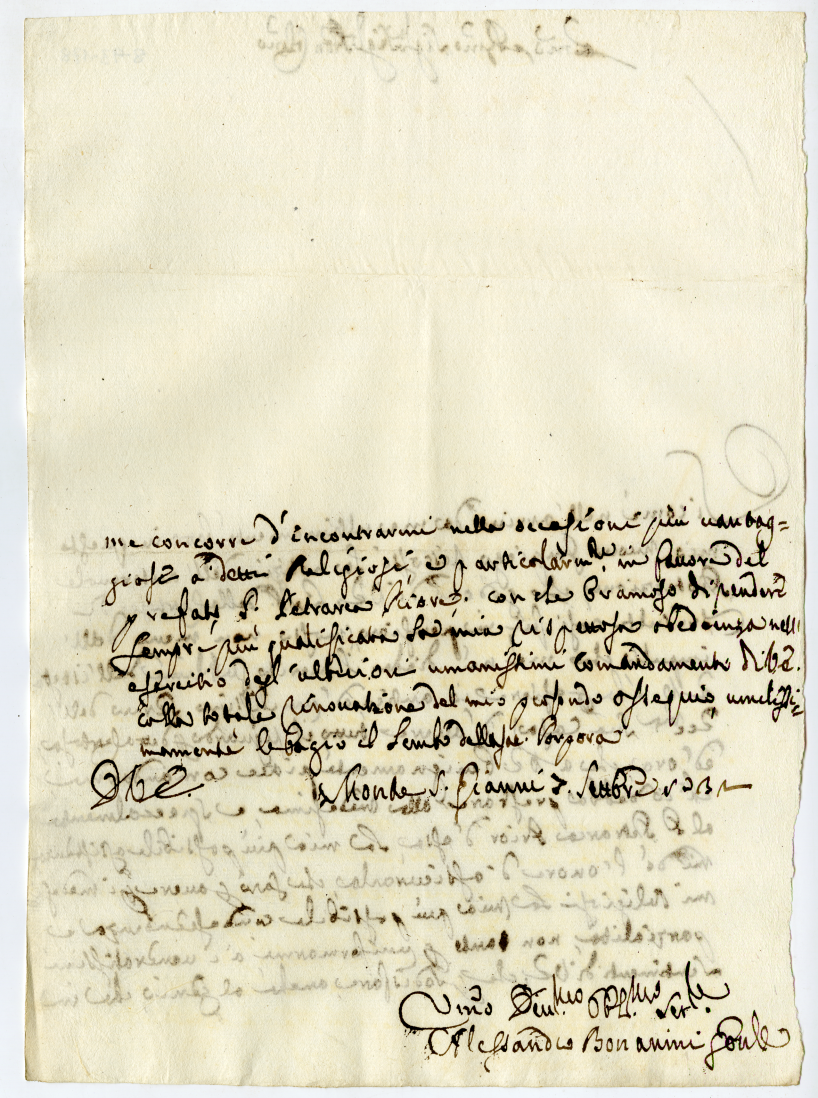 me concorre d'incontrarmi nelle occasioni più vantag=
giose a' detti Religiosi e particolarm.te in favore del
prefato P. Petrarca Priore. con che bramoso di rendere
sempre più qualificata la mia rispettosa obedienza nell'
esercitio degl'ulteriori umanissimi comandamenti di V.E.
colla totale rinovatione del mio profondo ossequio, umilissi=
mamente le bagio il lembo della Sac. Porpora
D.V.E.
Monte S. Gianni 7. Settbre 1731
Umo Devmo Obbmo Ser.re
Alessandro Bonanini